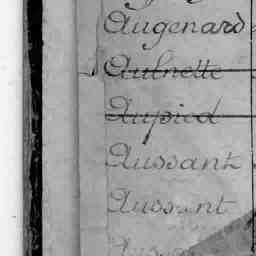 Augenard
Aulnette
Aupied
Aussant
Aussant